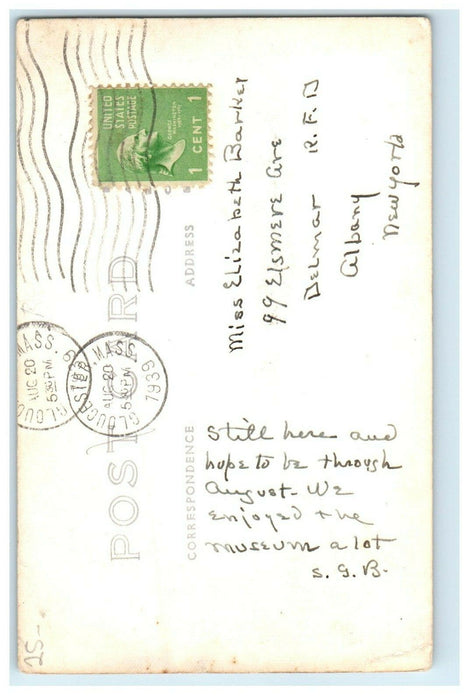 UNITED
STATES
POSTAGE
GEORGE
WASHINGTON
1 CENT 1
GLOUCESTER, MASS.
AUG 20
5 30 PM
1939
GLOUCESTER, MASS.
AUG 20
5 30 PM
POST CARD
CORRESPONDENCE
ADDRESS
Still here and
hope to be through
August- We
enjoyed the
museum a lot
S. G. B.
Miss Elizabeth Barker
99 Elsmere Ave
Delmar R. F. D
Albany
New York
25-